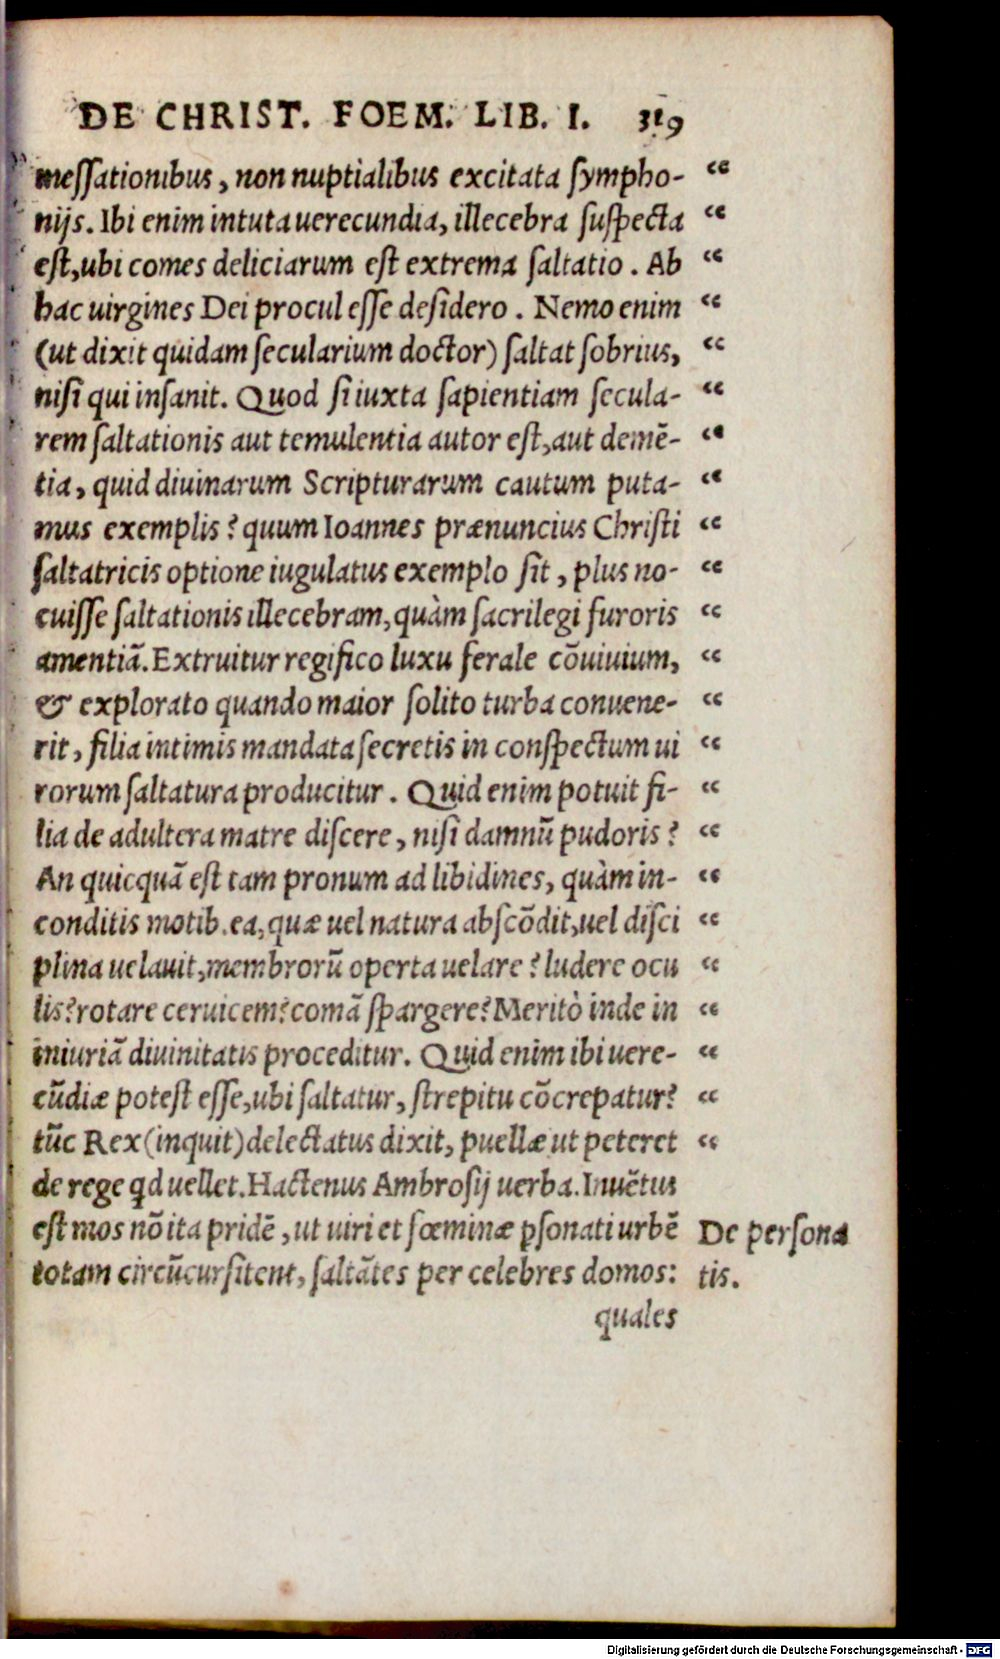 DE CHRIST. FOEM. LIB. I. 319
meſſationibus, non nuptialibus excitata ſympho- “
nijs. Ibi enim intuta uerecundia, illecebra ſuſpecta “
eſt, ubi comes deliciarum eſt extrema ſaltatio. Ab “
hac uirgines Dei procul eſſe deſidero. Nemo enim “
(ut dixit quidam ſecularium doctor) ſaltat ſobrius, “
niſi qui inſanit. Quod ſi iuxta ſapientiam ſecula- “
rem ſaltationis aut temulentia autor eſt, aut demẽ- “
tia, quid diuinarum Scripturarum cautum puta- “
mus exemplis? quum Ioannes prænuncius Chriſti “
ſaltatricis optione iugulatus exemplo ſit, plus no- “
cuiſſe ſaltationis illecebram, quàm ſacrilegi furoris “
amentiã. Extruitur regifico luxu ferale cõuiuium, “
& explorato quando maior ſolito turba conuene- “
rit, filia intimis mandata ſecretis in conſpectum ui “
rorum ſaltatura producitur. Quid enim potuit fi- “
lia de adultera matre diſcere, niſi damnũ pudoris? “
An quicquã eſt tam pronum ad libidines, quàm in- “
conditis motib. ea, quæ uel natura abſcõdit, uel diſci “
plina uelauit, membrorũ operta uelare? ludere ocu “
lis? rotare ceruicem? comã ſpargere? Meritò inde in “
iniuriã diuinitatis proceditur. Quid enim ibi uere- “
cũdiæ poteſt eſſe, ubi ſaltatur, ſtrepitu cõcrepatur? “
tũc Rex (inquit) delectatus dixit, puellæ ut peteret “
de rege qd uellet. Hactenus Ambroſij uerba. Inuẽtus
eſt mos nõ ita pridẽ, ut uiri et fœminæ ꝑſonati urbẽ
totam circũcurſitent, ſaltãtes per celebres domos:
De perſona
tis.
quales
Digitalisierung gefördert durch die Deutsche Forschungsgemeinschaft - DFG